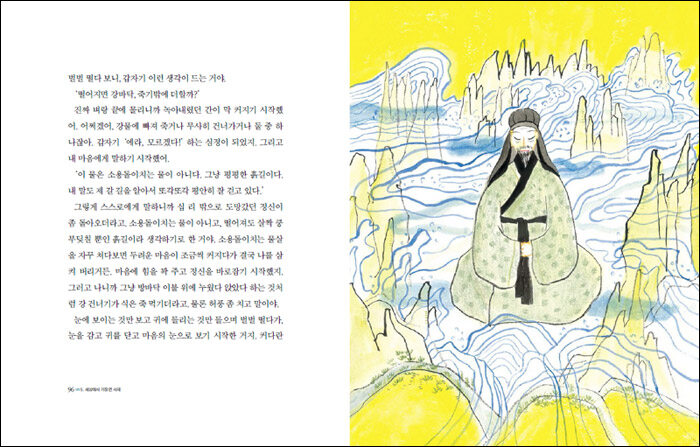 벌벌 떨다 보니, 갑자기 이런 생각이 드는 거야.
‘떨어지면 강바닥, 죽기밖에 더할까?’
진짜 벼랑 끝에 몰리니까 녹아내렸던 간이 막 커지기 시작했
어. 어쩌겠어. 강물에 빠져 죽거나 무사히 건너가거나 둘 중 하
나잖아. 갑자기 ‘에라, 모르겠다!’ 하는 심정이 되었지. 그리고
내 마음에게 말하기 시작했어.
‘이 물은 소용돌이치는 물이 아니다. 그냥 평평한 흙길이다.
내 말도 제 갈 길을 알아서 또각또각 평안히 잘 걷고 있다.’
그렇게 스스로에게 말하니까 십 리 밖으로 도망갔던 정신이
좀 돌아오더라고. 소용돌이치는 물이 아니고, 떨어져도 살짝 쿵
부딪칠 뿐인 흙길이라 생각하기로 한 거야. 소용돌이치는 물살
을 자꾸 쳐다보면 두려운 마음이 조금씩 커지다가 결국 나를 삼
켜 버리거든. 마음에 힘을 꽉 주고 정신을 바로잡기 시작했지.
그러고 나니까 그냥 방바닥 이불 위에 누웠다 앉았다 하는 것처
럼 강 건너기가 식은 죽 먹기더라고. 물론 허풍 좀 치고 말이야.
눈에 보이는 것만 보고 귀에 들리는 것만 들으며 벌벌 떨다가,
눈을 감고 귀를 닫고 마음의 눈으로 보기 시작한 거지. 커다란
96